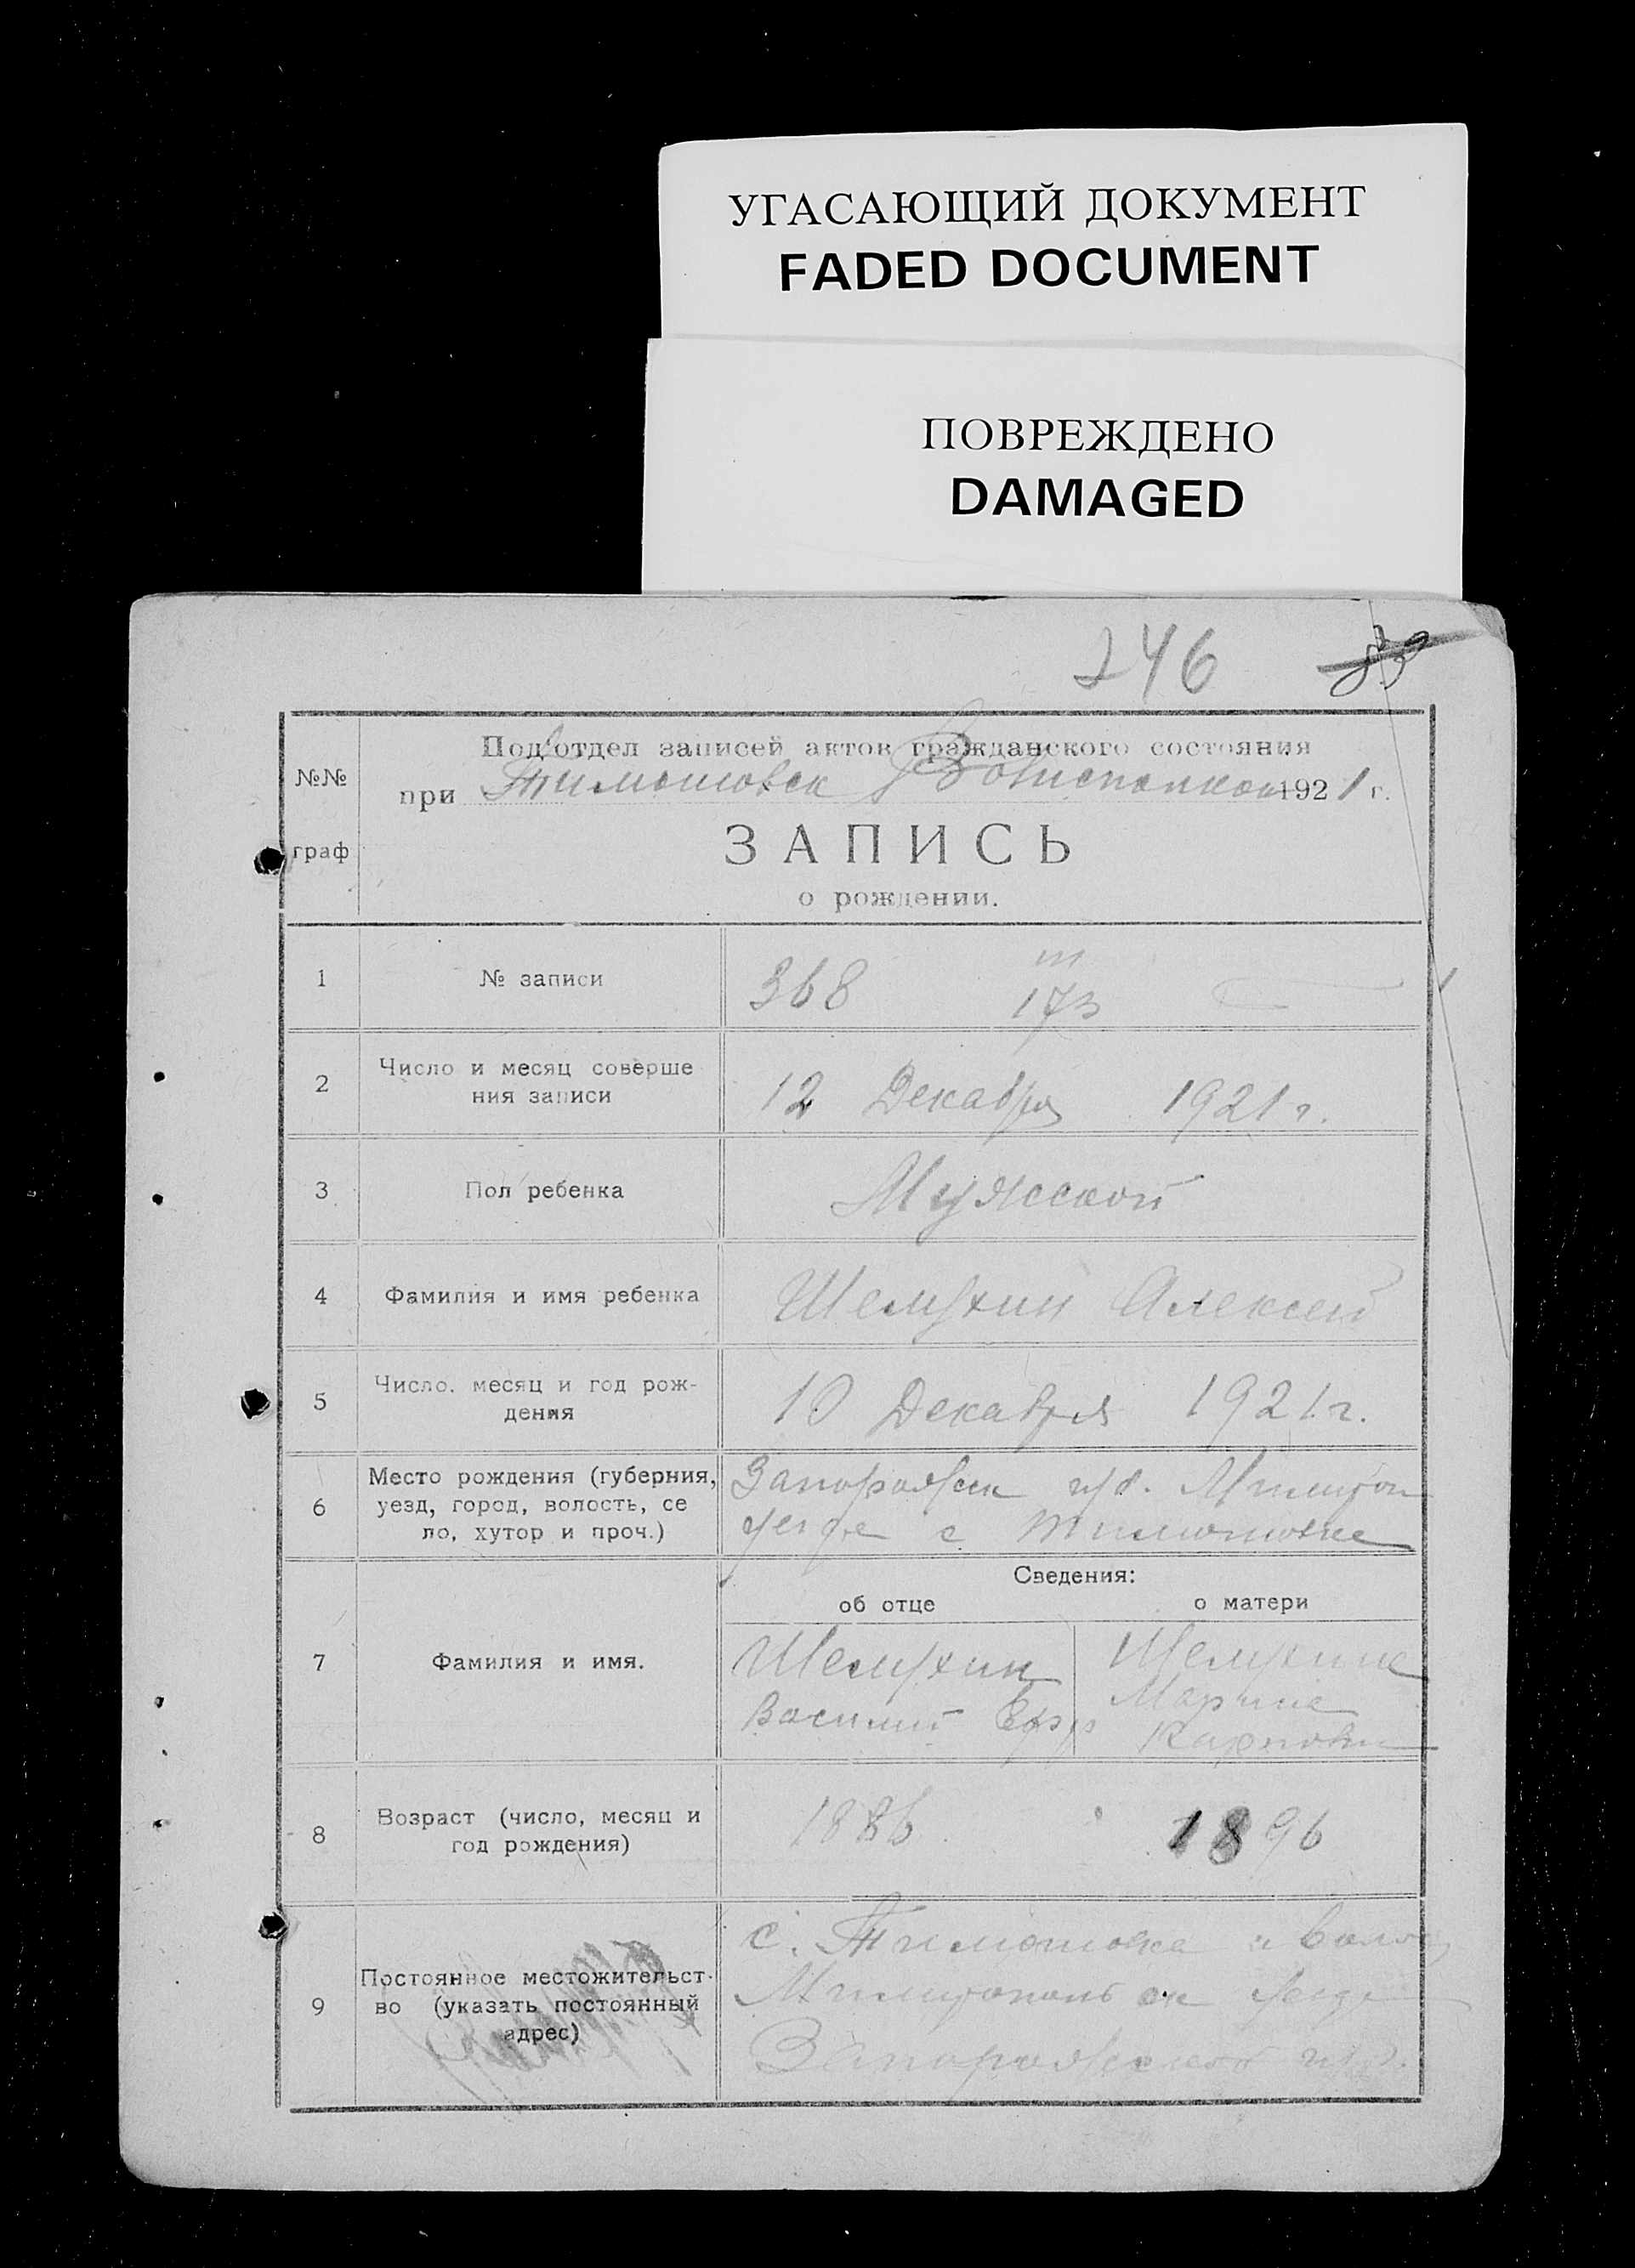 УГАСАЮЩИЙ ДОКУМЕНТ
FADED DOCUMENT
ПОВРЕЖДЕНО
DAMAGED
246
№№
граф
Под'отдел записей актов гражданского состояния
при Тимошовск 1921 г.
ЗАПИСЬ
о рождении.
1 № записи 368 173
2 Число и месяц соверше
ния записи 12 Декабря 1921 г.
3 Пол ребенка Мужской
4 Фамилия и имя ребенка Шемухин Алексей
5 Число, месяц и год рож-
дения 10 Декабря 1921 г.
6 Место рождения (губерния,
уезд, город, волость, се
ло, хутор и проч.)
Запорожск губ. Милитоп
уезде с Тимошовке
Сведения:
об отце о матери
7 Фамилия и имя.
Шемухин
Василий
Шемухина
Марина
8 Возраст (число, месяц и
год рождения) 1886 1896
9 Постоянное местожительст-
во (указать постоянный
адрес)
с. Тимошовка
Запорожской губ.